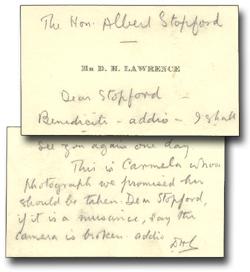 The Hon. Albert Stopford
—
MR D. H. LAWRENCE
Dear Stopford
Benediciti - addio - I shall
See you again one day
This is Carmela whose
photograph we promised her
should be taken. Dear Stopford,
if it is a nuisance, say the
camera is broken. addio
DHL